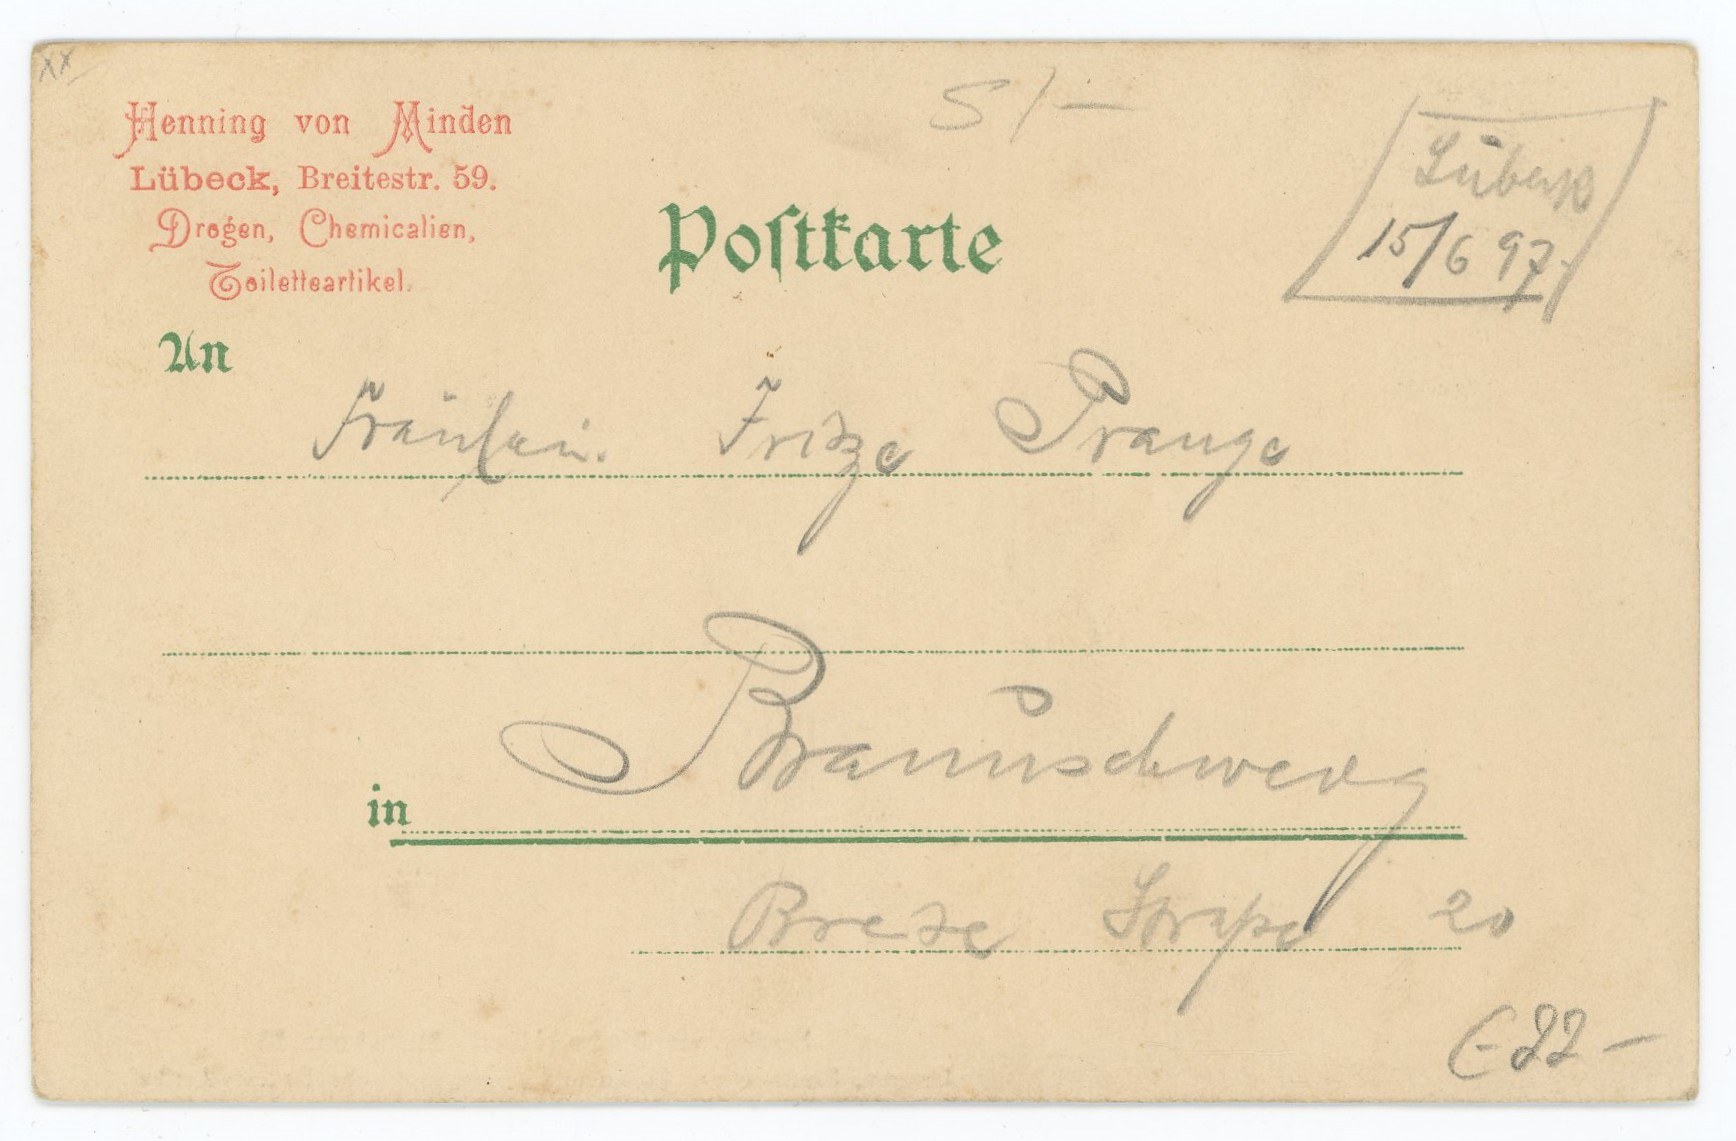 xx
Henning von Minden
Lübeck, Breitestr. 59.
Drogen, Chemicalien,
Toiletteartikel.
5/—
Postkarte
Lübeck
15/6 97.
An
Fräulein. Fritze Prange
in Braunschweig
Breite Straße 20
€ 22 –